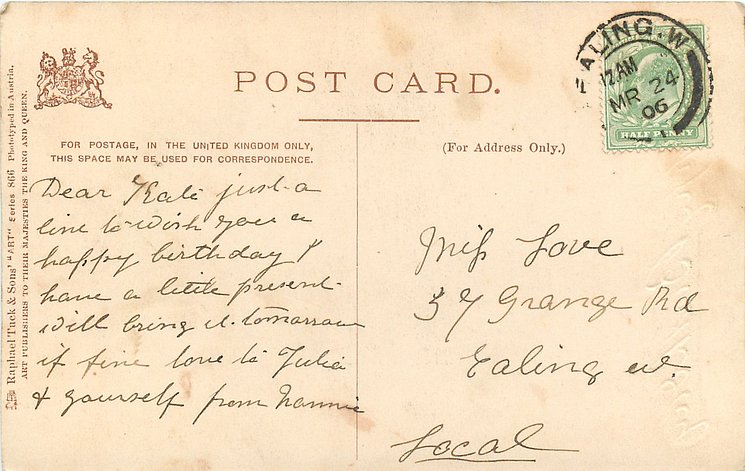 POST CARD.
FOR POSTAGE, IN THE UNITED KINGDOM ONLY,
THIS SPACE MAY BE USED FOR CORRESPONDENCE.
(For Address Only.)
Raphael Tuck & Sons' "ART" Series 866 Phototyped in Austria.
ART PUBLISHERS TO THEIR MAJESTIES THE KING AND QUEEN.
EALING. W
12 AM
MR 24
06
HALF PENNY
Dear Kate just a
line to wish you a
happy birthday I
have a little present
will bring it tomorrow
if fine love to Julia
& yourself from Nannie
Miss Love
37 Grange Rd
Ealing W.
Local